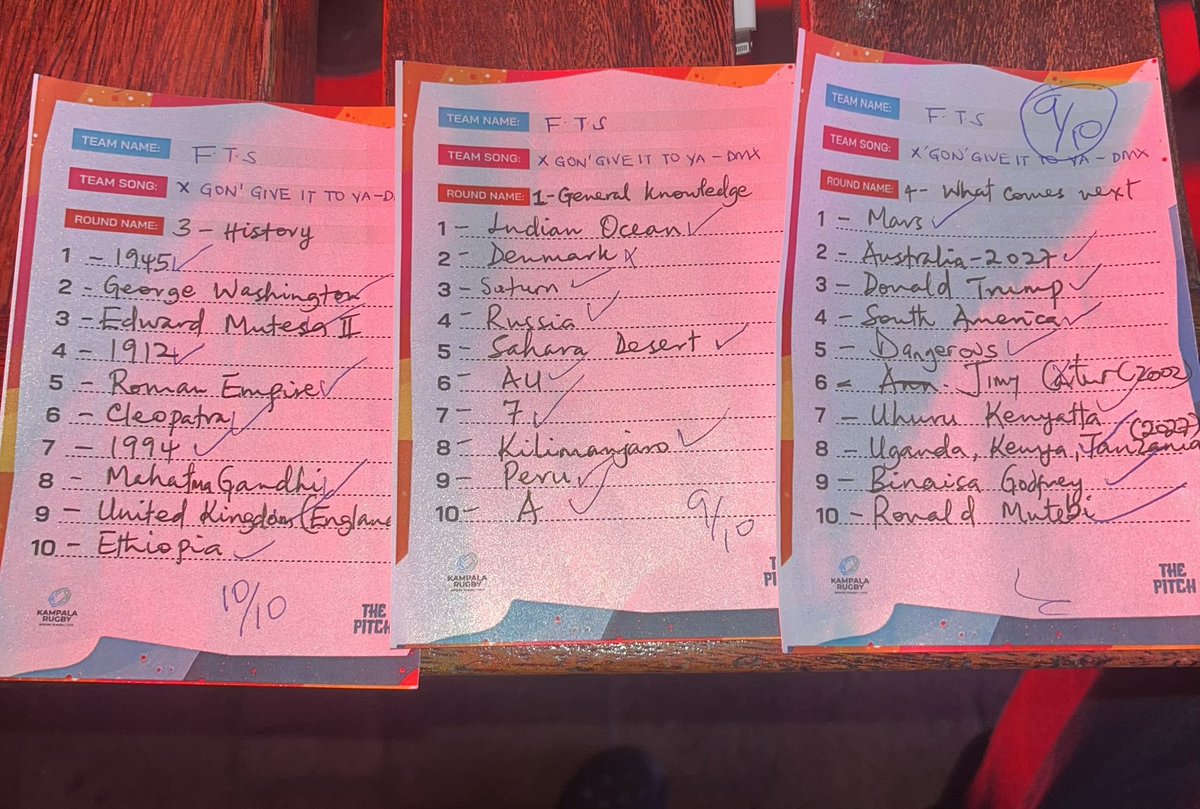 TEAM NAME: F.T.S
TEAM SONG: X GON' GIVE IT TO YA-D
ROUND NAME: 3 - History
1 - 1945
2 - George Washington
3 - Edward Mutesa II
4 - 1912
5 - Roman Empire
6 - Cleopatra
7 - 1994
8 - Mahatma Gandhi
9 - United Kingdom (England
10 - Ethiopia
10/10
KAMPALA
RUGBY
THE
PITCH
TEAM NAME: F.T.S
TEAM SONG: X GON' GIVE IT TO YA - DMX
ROUND NAME: 1-General knowledge
1 - Indian Ocean
2 - Denmark
3 - Saturn
4 - Russia
5 - Sahara Desert
6 - AU
7 - 7
8 - Kilimanjaro
9 - Peru
10 - A
9/10
KAMPALA
RUGBY
TEAM NAME: F.T.S
9/10
TEAM SONG: X 'GON' GIVE IT TO YA - DMX
ROUND NAME: 4 - What comes next
1 - Mars
2 - Australia - 2027
3 - Donald Trump
4 - South America
5 - Dangerous
6 - Jimy (2002)
7 - Uhuru Kenyatta
8 - Uganda, Kenya, Tanzania (2027)
9 - Binaisa Godfrey
10 - Ronald Mutebi
KAMPALA
RUGBY
THE
PITCH